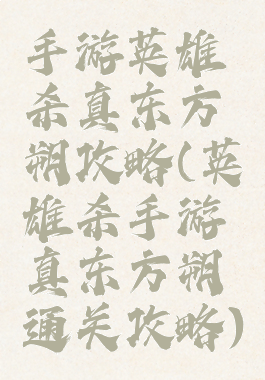 手游英雄
杀真东方
朔攻略(英
雄杀手游
真东方朔
通关攻略)